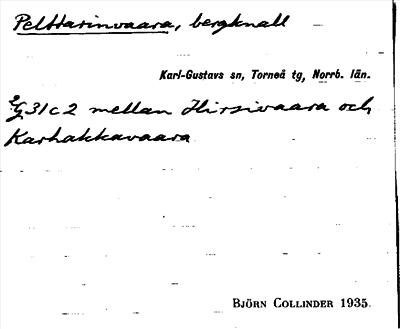 Pelttarinvaara, bergknall
Karl-Gustavs sn, Torneå tg, Norrb. län.
31c2 mellan Hirsivaara och
Karhakkavaara
BJÖRN COLLINDER 1935.